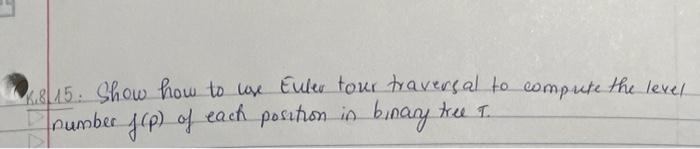 8.15. Show how to use Euler tour traversal to compute the level
number f(p) of each position in binary tree T.